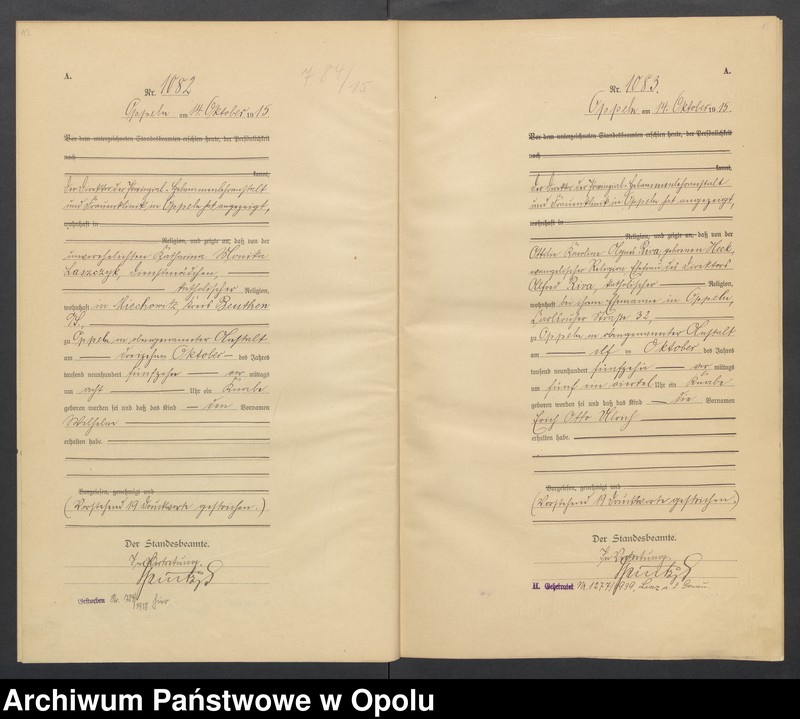 A.
Nr. 1082
Oppeln am 14. Oktober 1915.
Vor dem unterzeichneten Standesbeamten erschien heute, der Persönlichkeit
nach
kannt,
der Direktor der Provinzial-Hebammenlehranstalt
und Frauenklinik in Oppeln hat angezeigt,
wohnhaft in
Religion, und zeigte an, daß von der
unverehelichten Katharina Monika
Laszczyk, Dienstmädchen,
katholischer Religion,
wohnhaft in Miechowitz, Kreis Beuthen
zu Oppeln in obengenannter Anstalt
am dreizehn Oktober des Jahres
tausend neunhundert fünfzehn vor mittags
um acht Uhr ein Knabe
geboren worden sei und daß das Kind den Vornamen
Wilhelm
erhalten habe.
Vorgelesen, genehmigt und
(Vorstehend 19 Druckworte gestrichen.)
Der Standesbeamte.
In Vertretung.
Gestorben Nr. 784/1915 hier
784/15
A.
Nr. 1083.
Oppeln am 14. Oktober 1915.
Vor dem unterzeichneten Standesbeamten erschien heute, der Persönlichkeit
nach
kannt,
der Direktor der Provinzial-Hebammenlehranstalt
und Frauenklinik in Oppeln hat angezeigt,
wohnhaft in
Religion, und zeigte an, daß von der
Ottilie Karoline Agnes Riva, geborenen Heck,
evangelischer Religion, Ehefrau des Direktors
Alfred Riva, katholischer Religion,
wohnhaft bei ihrem Ehemanne in Oppeln,
Karlsruher Straße 32,
zu Oppeln in obengenannter Anstalt
am elf ten Oktober des Jahres
tausend neunhundert fünfzehn vor mittags
um fünf ein viertel Uhr ein Knabe
geboren worden sei und daß das Kind die Vornamen
Erich Otto Ulrich
erhalten habe.
Vorgelesen, genehmigt und
(Vorstehend 19 Druckworte gestrichen.)
Der Standesbeamte.
In Vertretung.
H. Geheiratet Nr. 1277/1939, Linz a. d. Donau.
Archiwum Państwowe w Opolu